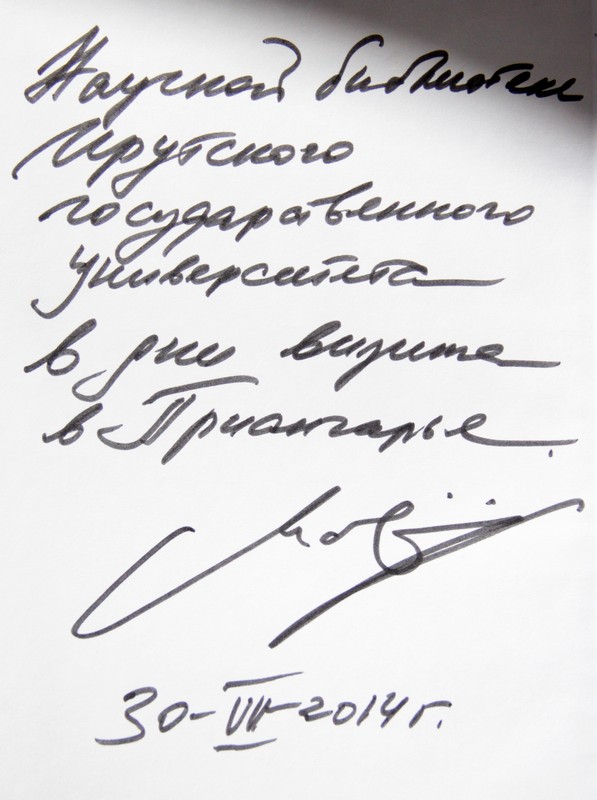 Научной библиотеке
Ирутского
государственного
университета
в дни визита
в Приангарье.
30-VII-2014г.